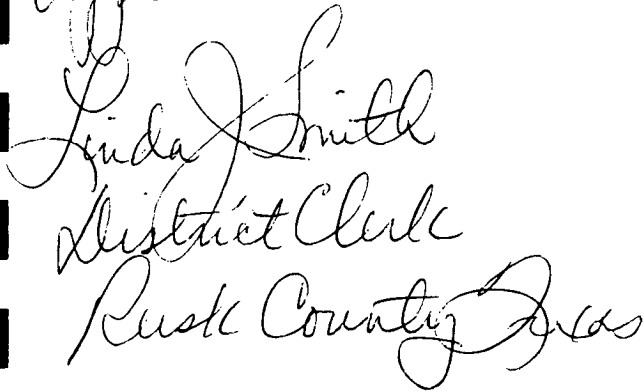 Linda J Smith
District Clerk
Rusk County Texas